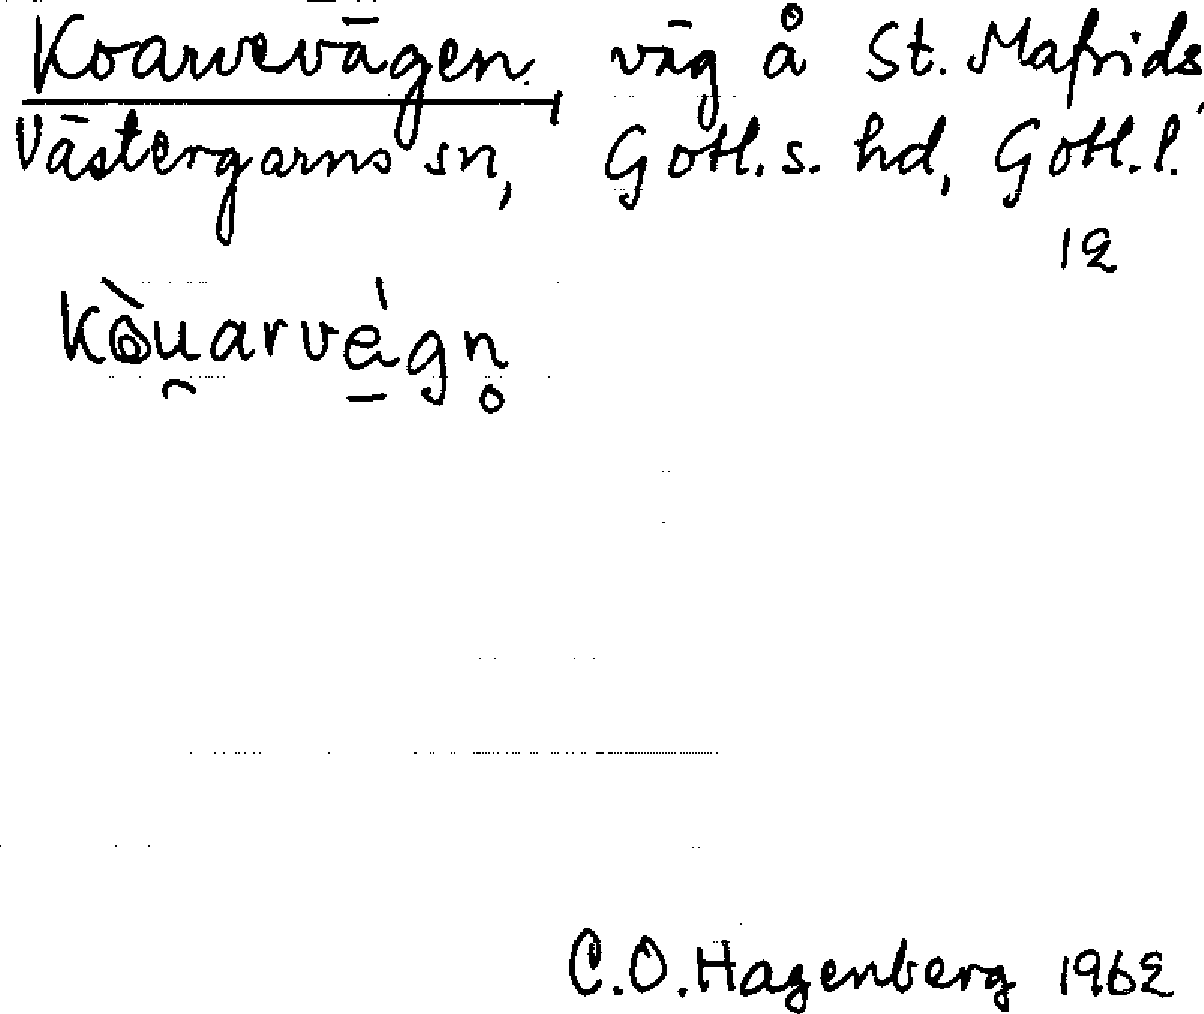 Koarvevägen väg å St. Mafrids,
Västergarns sn, Gotl. s. hd, Gotl. l.
12
C.O. Hagenberg 1962